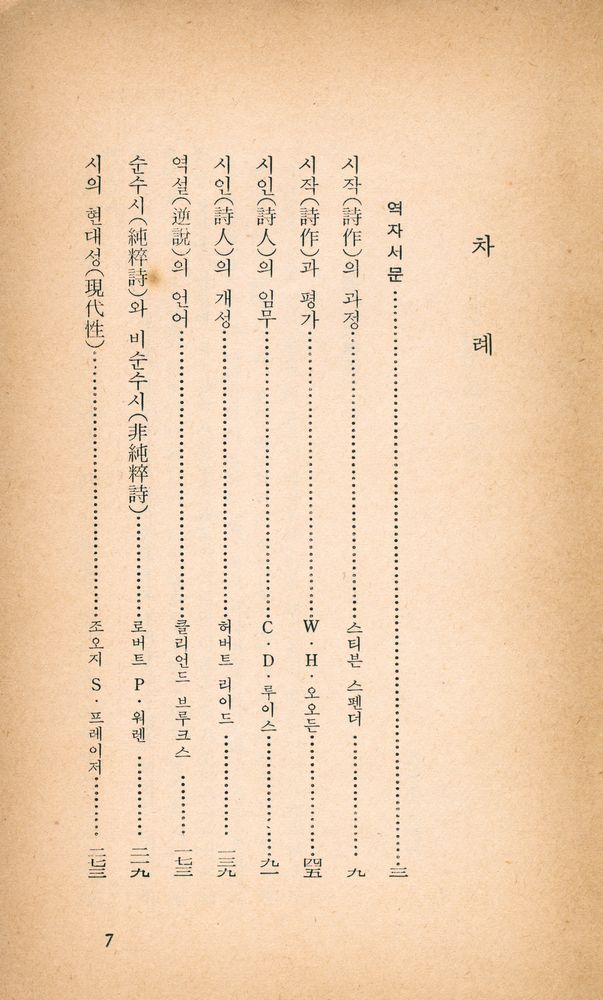 차 례
역자서문……三
시작(詩作)의 과정……스티븐 스펜더……九
시작(詩作)과 평가……W·H·오오든……四五
시인(詩人)의 임무……C·D·루이스……九一
시인(詩人)의 개성……허버트 리이드……一三九
역설(逆說)의 언어……클리언드 브루크스……一七三
순수시(純粹詩)와 비순수시(非純粹詩)……로버트 P·워렌……二一九
시의 현대성(現代性)……조오지 S·프레이저……二七三
7